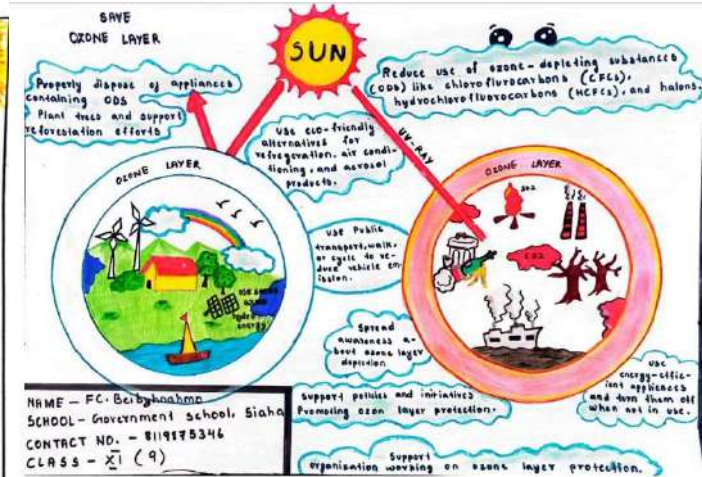 SAVE
OZONE LAYER
SUN
Properly dispose of appliances
containing ODS
Plant trees and support
reforestation efforts
Reduce use of ozone-depleting substances
(ODS) like chloroflurocarbons (CFCs),
hydrochlorofluorocarbons (HCFCs), and halons.
use eco-friendly
alternatives for
refregeration, air condi-
tioning, and aerosol
products.
UV-RAY
OZONE LAYER
OZONE LAYER
SO2
CO2
use Public
transport, walk,
or cycle to re-
duce vehicle em-
ission.
hydro
energy
Spread
awareness a-
bout ozone layer
depletion
use
energy-effic-
ient appliances
and turn them off
when not in use.
Support policies and initiatives
Promoting ozon layer protection.
Support
organization working on ozone layer protection.
NAME - FC. Beibyhnahmo
SCHOOL - Government school, Siaha
CONTACT NO. - 8119875346
CLASS - XI (9)